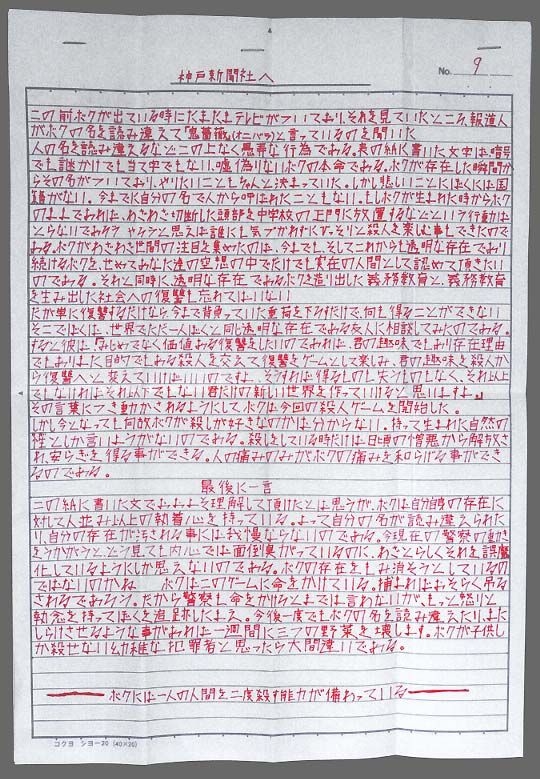 神戸新聞社へ
No. 9
この前ボクが出ている時にたまたまテレビがついており、それを見ていたところ、報道人
がボクの名を読み違えて「鬼薔薇」(オニバラ)と言っているのを聞いた
人の名を読み違えるなどこの上なく愚弄な行為である。表の紙に書いた文字は暗号
でも謎かけでも当て字でもない、嘘偽りないボクの本命である。ボクが存在した瞬間か
らその名がついており、やりたいこともちゃんと決まっていた。しかし悲しいことにぼくには国
籍がない。今までに自分の名で人から呼ばれたこともない。もしボクが生まれた時からボク
のままであれば、わざわざ切断した頭部を中学校の正門に放置するなどという行動は
とらないであろう やろうと思えば誰にも気づかれずにひっそりと殺人を楽しむ事もできたので
ある。ボクがわざわざ世間の注目を集めたのは、今までも、そしてこれからも透明な存在であり
続けるボクを、せめてあなた達の空想の中でだけでも実在の人間として認めて頂きたい
のである。それと同時に、透明な存在であるボクを造り出した義務教育と、義務教育
を生み出した社会への復讐も忘れてはいない
だが単に復讐するだけなら、今まで背負っていた重荷を下ろすだけで、何も得ることができない
そこでぼくは、世界でただ一人ぼくと同じ透明な存在である友人に相談してみたのである。
すると彼は、「みじめでなく価値ある復讐をしたいのであれば、君の趣味でもあり存在理由
でもありまた目的でもある殺人を交えて復讐をゲームとして楽しみ、君の趣味を殺人か
ら復讐へと変えていけばいいのですよ、そうすれば得るものも失うものもなく、それ以上で
もなければそれ以下でもない君だけの新しい世界を作っていけると思いますよ。」
その言葉につき動かされるようにしてボクは今回の殺人ゲームを開始した。
しかし今となっても何故ボクが殺しが好きなのかは分からない。持って生まれた自然の
性としか言いようがないのである。殺しをしている時だけは日頃の憎悪から解放さ
れ、安らぎを得る事ができる。人の痛みのみが、ボクの痛みを和らげる事ができ
るのである。
最後に一言
この紙に書いた文でおおよそ理解して頂けたとは思うが、ボクは自分自身の存在に
対して人並み以上の執着心を持っている。よって自分の名が読み違えられた
り、自分の存在が汚される事には我慢ならないのである。今現在の警察の動き
をうかがうと、どう見ても内心では面倒臭がっているのに、わざとらしくそれを誤魔
化しているようにしか思えないのである。ボクの存在をもみ消そうとしているの
ではないのかね ボクはこのゲームに命をかけている。捕まればおそらく吊る
されるであろう。だから警察も命をかけろとまでは言わないが、もっと怒りと
執念を持ってぼくを追跡したまえ。今後一度でもボクの名を読み違えたり、また
しらけさせるような事があれば一週間に三つの野菜を壊します。ボクが子供し
か殺せない幼稚な犯罪者と思ったら大間違いである。
ボクには一人の人間を二度殺す能力が備わっている
コクヨ シヨ-20 (40×20)